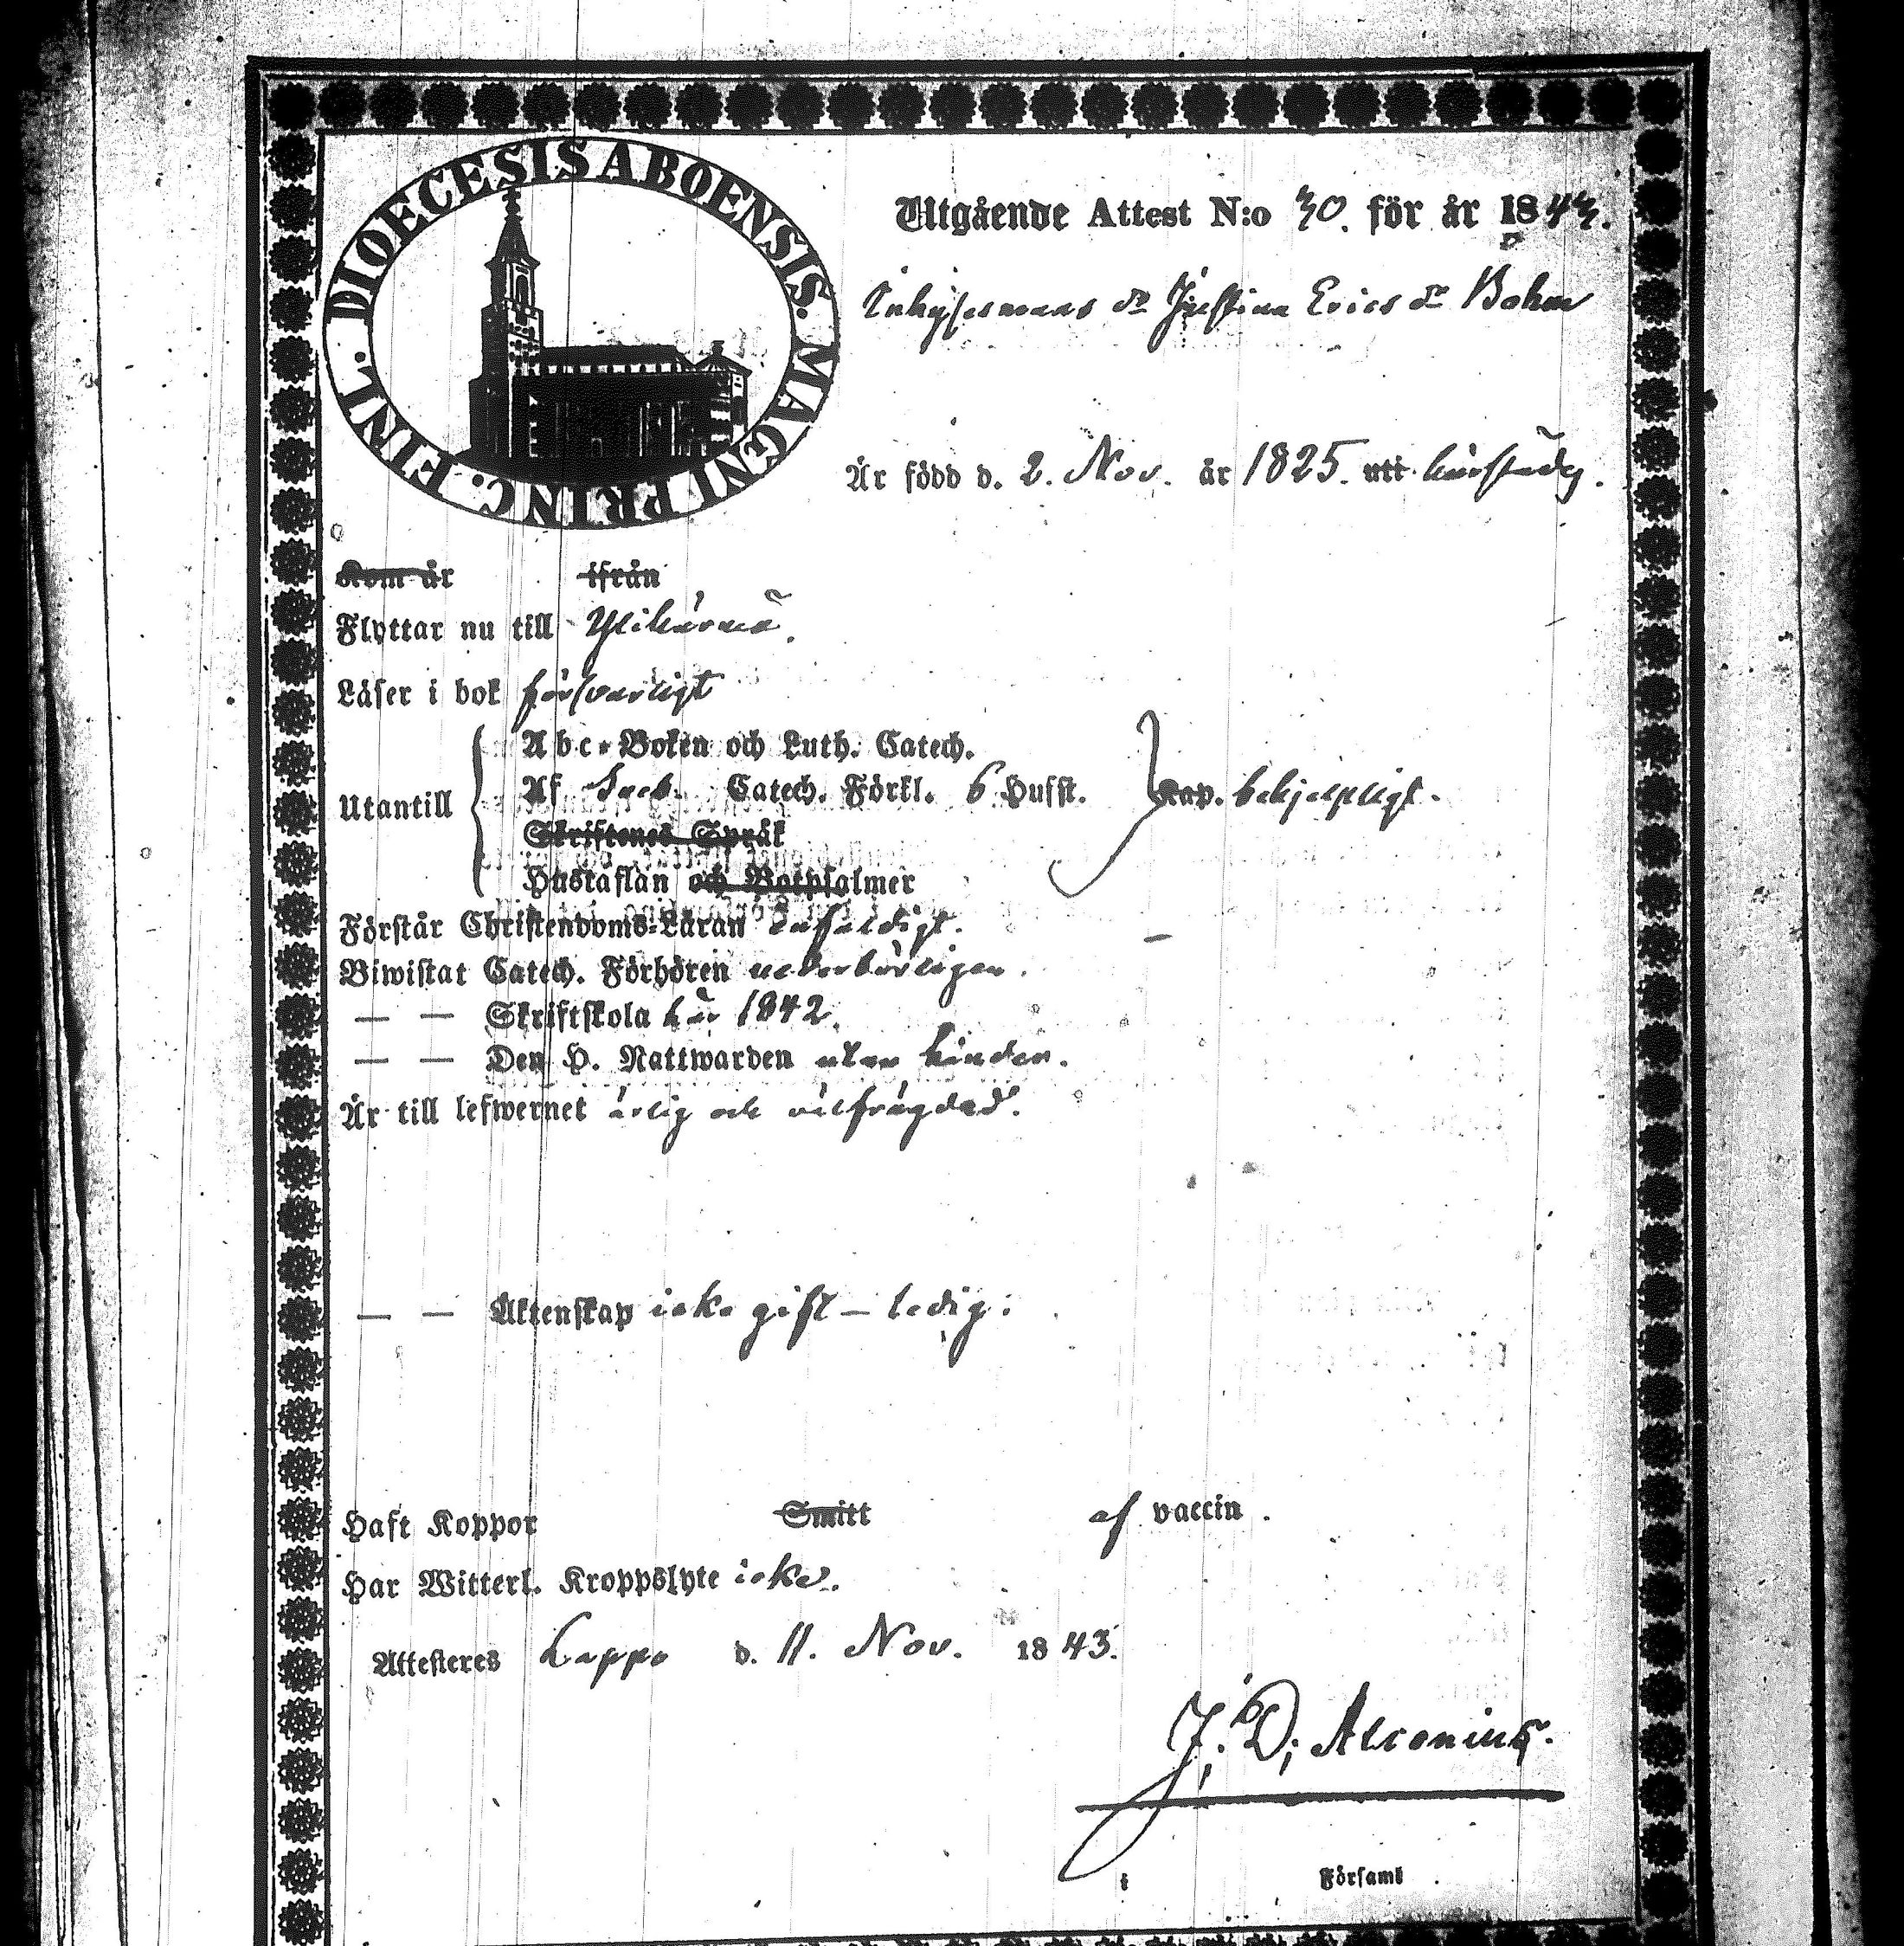 DIOECESIS ABOENSIS. MAGNI PRINC. FINL.
Utgående Attest N:o 30. för år 1843.
Inhysesmans dr Justina Erics dr Bohm
Är född d. 2. Nov. år 1825. uti härstädes.
Kom år ifrån
Flyttar nu till Ylihärmä.
Läser i bok försvarligt
Utantill
Abc-Boken och Luth. Catech.
Af Sveb. Catech. Förkl. 6 Husst. Kap. behjelpligt.
Skriftenes Språk
Hustaflan och Botpsalmer
Förstår Christendoms-Läran enfaldigt.
Biwistat Catech. Förhören vederbörligen.
— — Skriftskola här 1842.
— — Den H. Nattwarden utan hinder.
Är till lefwernet ärlig och välfrägdad.
— — Äktenskap icke gift — ledig.
Haft Koppor Smitt af vaccin.
Har Witterl. Kroppslyte icke.
Attesteres Lappo d. 11. Nov. 1843.
J. D. Alconius.
i Församl.